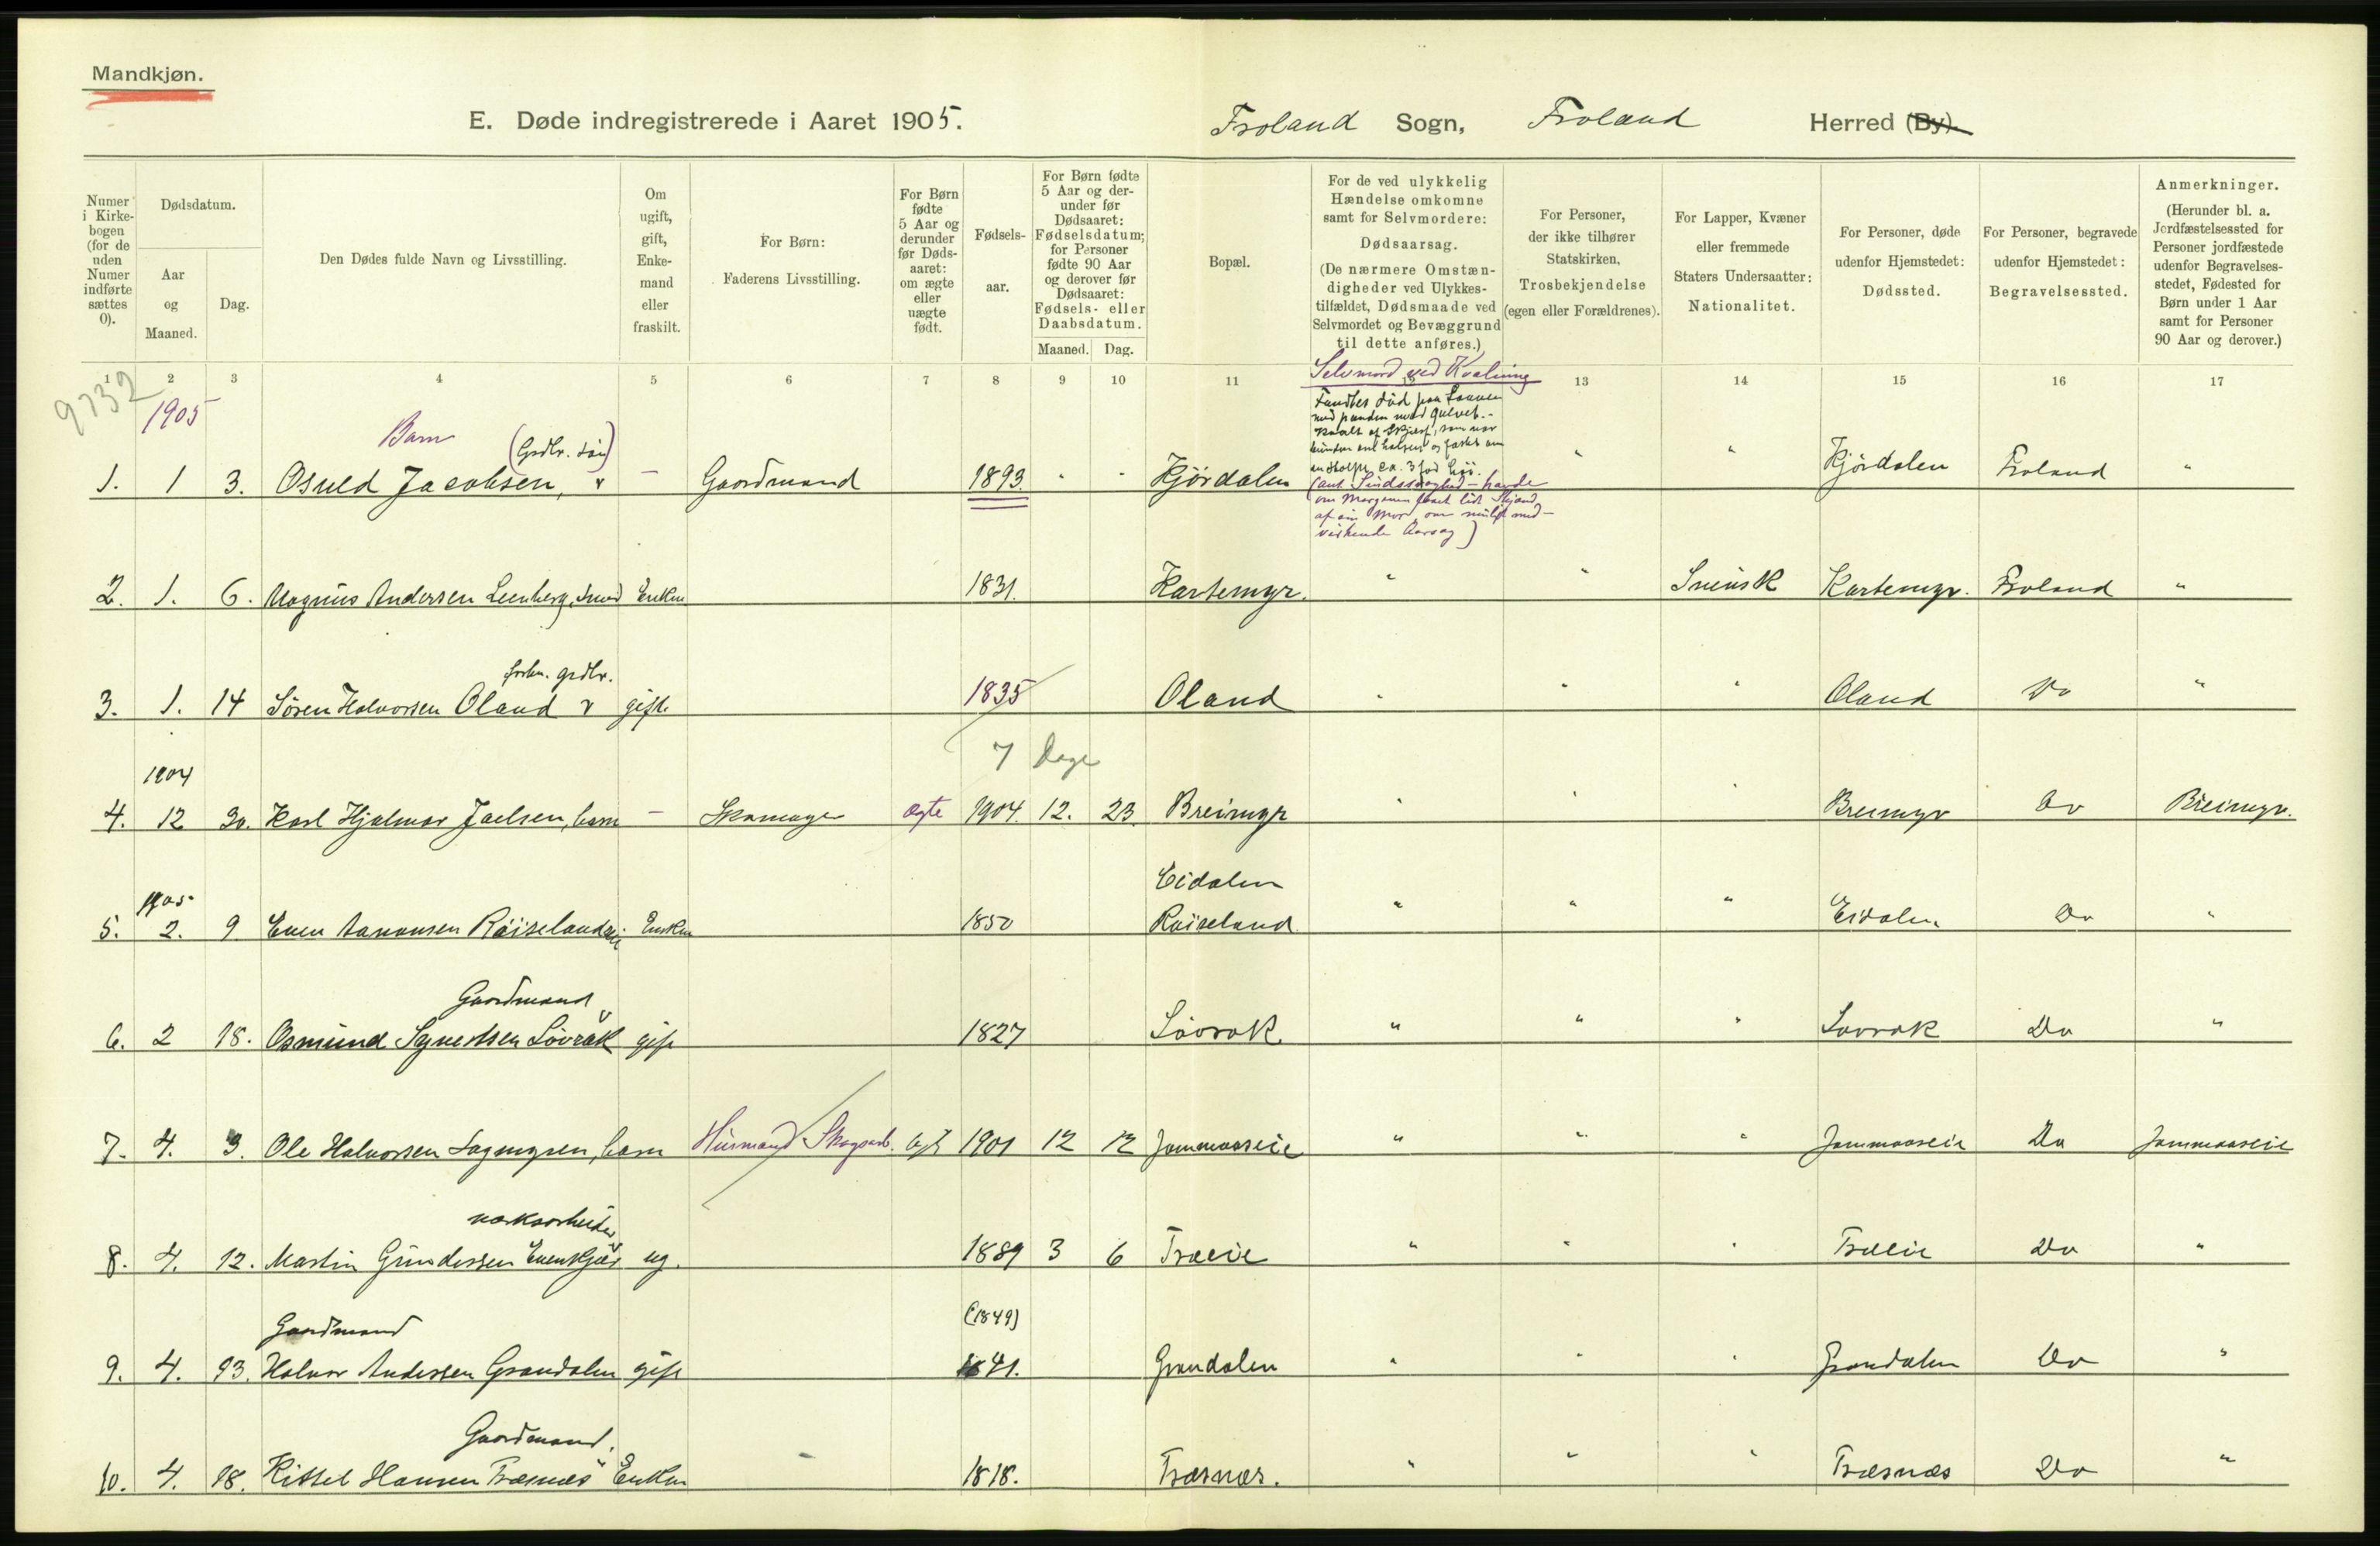 Mandkjøn.
E. Døde indregistrerede i Aaret 1905.
Froland Sogn, Froland Herred (By).
Numer i Kirkebogen (for de uden Numer indførte sættes 0).
Dødsdatum.
Aar og Maaned.
Dag.
Den Dødes fulde Navn og Livsstilling.
Om ugift, gift, Enkemand eller fraskilt.
For Børn: Faderens Livsstilling.
For Børn fødte 5 Aar og derunder før Dødsaaret: om ægte eller uægte født.
Fødselsaar.
For Børn fødte 5 Aar og derunder før Dødsaaret: Fødselsdatum; for Personer fødte 90 Aar og derover før Dødsaaret: Fødsels- eller Daabsdatum.
Maaned. Dag.
Bopæl.
For de ved ulykkelig Hændelse omkomne samt for Selvmordere: Dødsaarsag. (De nærmere Omstændigheder ved Ulykkestilfældet, Dødsmaade ved Selvmordet og Bevæggrund til dette anføres.)
For Personer, der ikke tilhører Statskirken, Trosbekjendelse (egen eller Forældrenes).
For Lapper, Kvæner eller fremmede Staters Undersaatter: Nationalitet.
For Personer, døde udenfor Hjemstedet: Dødssted.
For Personer, begravede udenfor Hjemstedet: Begravelsessted.
Anmerkninger. (Herunder bl. a. Jordfæstelsessted for Personer jordfæstede udenfor Begravelsesstedet, Fødested for Børn under 1 Aar samt for Personer 90 Aar og derover.)
1 2 3 4 5 6 7 8 9 10 11 13 14 15 16 17
9732
1905
Selvmord ved Kvælning
Fundtes død paa Laaven
med panden mod gulvet. -
Kvalt af Skjærf, som var
bunden om halsen og fæstet om
en Stolpe ca. 3 fod høi.
(ant. Sindssvaghed - havde
om Morgenen faaet lidt Skjænd
af sin Mor, som mulig med-
virkende Aarsag)
Barn (Gdbr. søn)
1. 1 3. Osuld Jacobsen, — Gaardmand 1893 " " Kjördalen " " Kjördalen Froland "
2. 1. 6. Magnus Andersen Smed Enkm 1831. Kartemyr. " " Svensk Kartemyr. Froland "
forhv. gdbr.
3. 1. 14 Sören Halvorsen Oland gift. 1835 Oland " " " Oland Do "
7 Dage
1904
4. 12 30. Karl Hjalmar Joelsen, barn — Skomager Ægte 1904. 12. 23. Breimyr " " " Breimyr Do Breimyr.
1905
Eidalen
5. 2. 9 Even Aanonsen Röiseland Enkm 1850 Röiseland " " " Eidalen. Do "
Gaardmand
6. 2 18. Osmund Syvertsen Lövrak gift 1827 Lövrak " " " Lövrak Do "
7. 4. 3. Ole Halvorsen barn Husmand Skogsarb. Ægt 1901 12 12 Jommaaseie " " " Jommaaseie Do Jommaaseie
værksarbeider
8. 4. 12. Martin Gundersen Evenkjær ug. 1889 3 6 Træeie " " " Træeie Do "
Gaardmand (1849)
9. 4. 13. Halvor Andersen Grandalen gift 1841. Grandalen " " " Grandalen Do "
Gaardmand.
10. 4. 18. Kittel Hansen Træsnæs Enkm - 1818. Træsnæs. " " " Træsnæs Do "